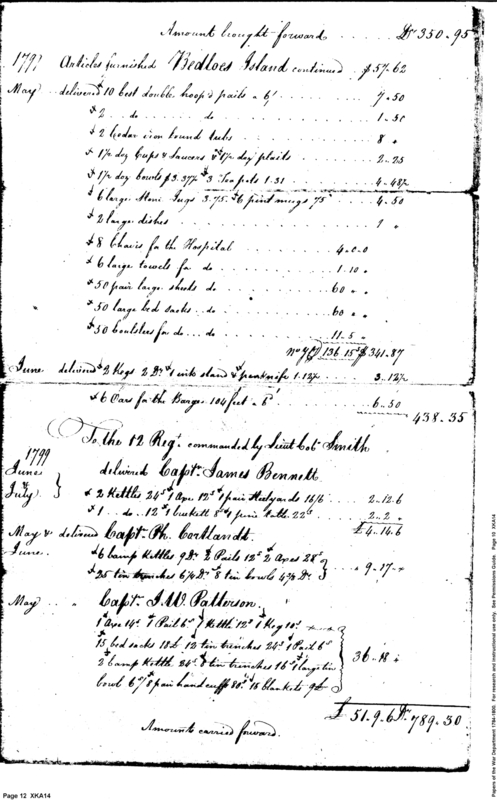 Amount brought forward . . . . Drs 350-95
1799 Articles furnished Bedloes Island continued . $57-62
May delivered 10 best double hoop'd pails a 6/ . . . . . 7-50
2 ... do ... do . . . 1-50
2 Cedar iron bound tubs . . . 8 "
1½ doz Cups & Saucers & 1½ doz plaits . . . 2-25
1½ doz bowls $3.37½ 3 Tea pots 1.31 . . . 4-48½
6 large Stone Jugs 3.75. 6 pint mugs 75 . . . 4-50
2 large dishes . . . 1 "
8 Chairs for the Hospital . . . 4-0-0
6 large towels for do . . . 1-10 "
50 pair large sheets do . . . 60 " "
50 large bed sacks .. do . . . 60 " "
50 boulsters for do ... do . . . 11-5 "
136 15 $341-87
June delivered 2 Kegs 2 Drs 1 ink stand & penknife 1.12½ 3-12½
6 Oars for the Barges 104 feet a 6 . . . 6-50
438-35
To the 12 Regt. commanded by Lieut Col. Smith
1799
June & July } delivered Capt. James Bennett
2 Kettles 24s 1 Axe 12s 1 pair Steelyards 16/6 . . 2-12-6
1 .. do .. 12 1 buckett 8 1 22s . . 2-2 "
£4-14-6
May & June delivered Capt. Ph. Cortlandt.
6 Camp Kettles 9 Drs 2 Pails 12s 2 Axes 28s
25 tin trenches 6¼ Drs 8 tin bowls } 9-17-"
May " Capt. J. W. Patterson.
1 Axe 14s 1 Pail 6s 1 Kettle 12s 1 Keg 10s
15 bed sacks 18£ 12 tin trenches 24s 1 Pail 6s
2 Camp Kettle 24s 8 tin trenches 16s 1 large tin } 36-18 "
bowl 6s 8 pair hand cuffs 80s 18 blankets 9£
£51-9-6 Drs 789-30
Amounts carried forward.
Page 12 XKA14
Papers of the War Department 1784-1800. For research and instructional use only. See Permissions Guide. Page 10 XKA14